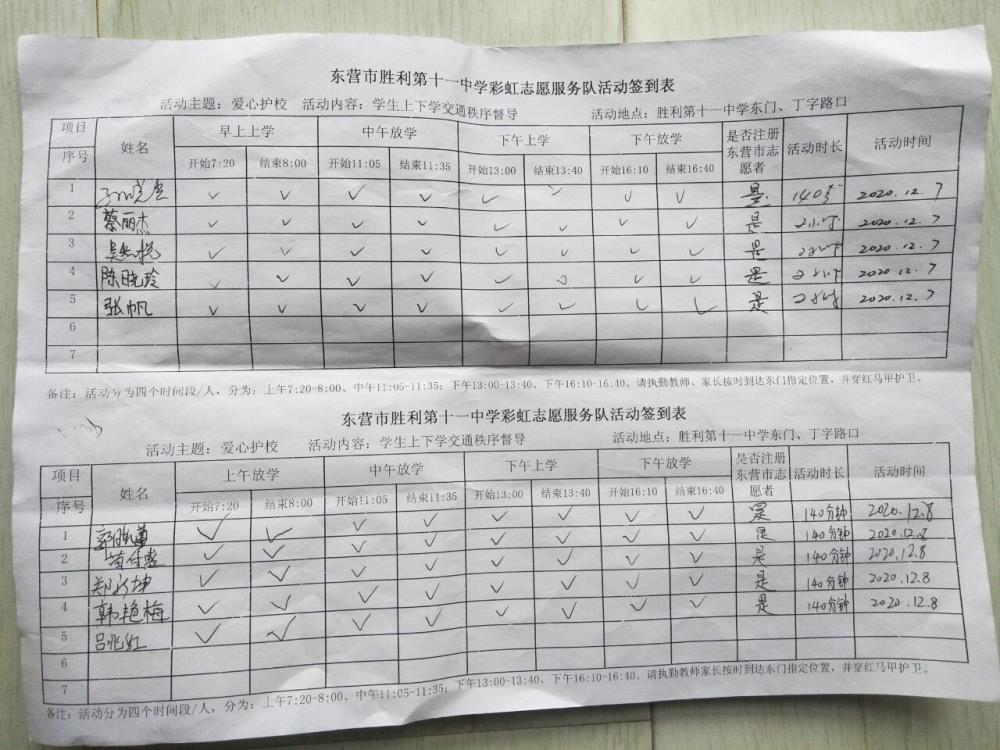 东营市胜利第十一中学彩虹志愿服务队活动签到表
活动主题：爱心护校 活动内容：学生上下学交通秩序督导 活动地点：胜利第十一中学东门、丁字路口
项目 序号 姓名 早上上学 中午放学 下午上学 下午放学 是否注册东营市志愿者 活动时长 活动时间
开始7:20 结束8:00 开始11:05 结束11:35 开始13:00 结束13:40 开始16:10 结束16:40
1 ✓ ✓ ✓ ✓ ✓ ✓ ✓ ✓ 是 140 2020.12.7
2 蔡丽杰 ✓ ✓ ✓ ✓ ✓ ✓ ✓ ✓ 是 2小时 2020.12.7
3 ✓ ✓ ✓ ✓ ✓ ✓ ✓ ✓ 是 2小时 2020.12.7
4 陈晓玲 ✓ ✓ ✓ ✓ ✓ ✓ ✓ ✓ 是 2小时 2020.12.7
5 张帆 ✓ ✓ ✓ ✓ ✓ ✓ ✓ ✓ 是 2小时 2020.12.7
6
7
备注：活动分为四个时间段/人，分为：上午7:20-8:00、中午11:05-11:35；下午13:00-13:40、下午16:10-16:40。请执勤教师、家长按时到达东门指定位置，并穿红马甲护卫。
东营市胜利第十一中学彩虹志愿服务队活动签到表
活动主题：爱心护校 活动内容：学生上下学交通秩序督导 活动地点：胜利第十一中学东门、丁字路口
项目 序号 姓名 上午放学 中午放学 下午上学 下午放学 是否注册东营市志愿者 活动时长 活动时间
开始7:20 结束8:00 开始11:05 结束11:35 开始13:00 结束13:40 开始16:10 结束16:40
1 ✓ ✓ ✓ ✓ ✓ ✓ ✓ ✓ 是 140分钟 2020.12.8
2 ✓ ✓ ✓ ✓ ✓ ✓ ✓ ✓ 是 140分钟 2020.12.8
3 ✓ ✓ ✓ ✓ ✓ ✓ ✓ ✓ 是 140分钟 2020.12.8
4 韩艳梅 ✓ ✓ ✓ ✓ ✓ ✓ ✓ ✓ 是 140分钟 2020.12.8
5 吕兆红 ✓ ✓ ✓ ✓ ✓ ✓ ✓ ✓ 是 140分钟 2020.12.8
6
7
备注：活动分为四个时间段/人，分为：上午7:20-8:00、中午11:05-11:35；下午13:00-13:40、下午16:10-16:40。请执勤教师家长按时到达东门指定位置，并穿红马甲护卫。